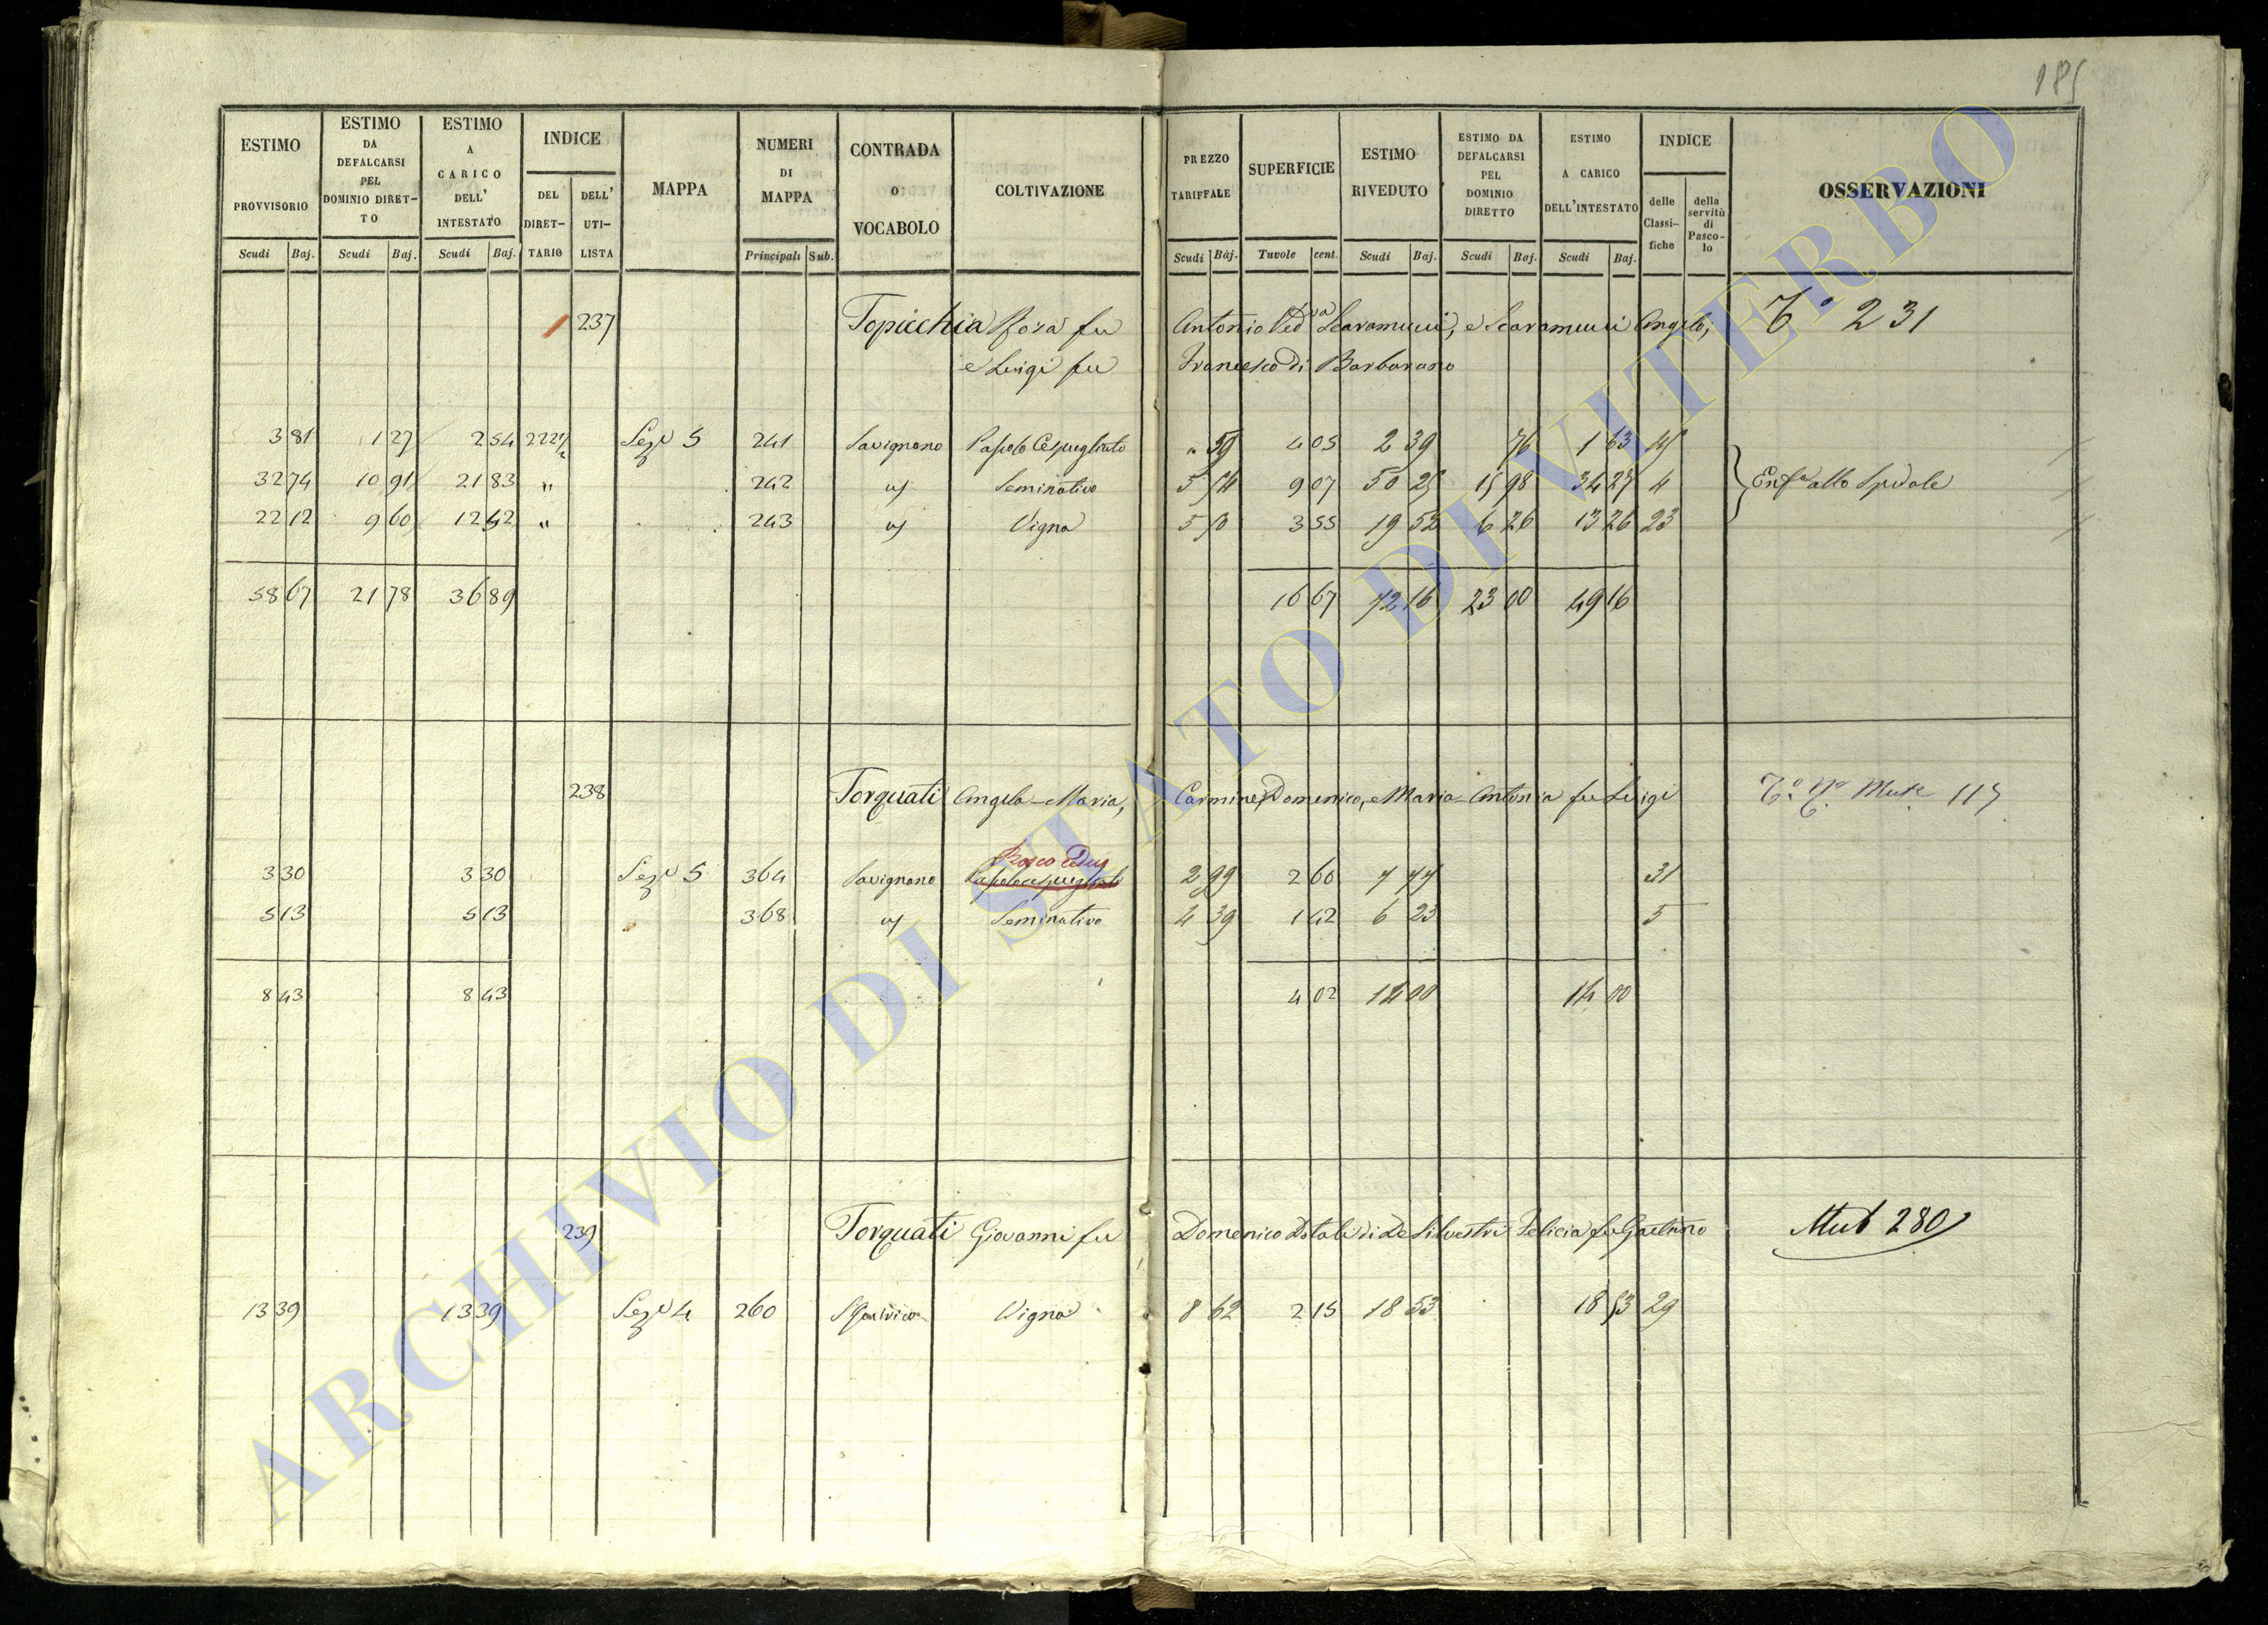 185
ESTIMO PROVVISORIO Scudi Baj.
ESTIMO DA DEFALCARSI PEL DOMINIO DIRET-TO Scudi Baj.
ESTIMO A CARICO DELL' INTESTATO Scudi Baj.
INDICE DEL DIRET-TARIO DELL' UTI-LISTA
MAPPA
NUMERI DI MAPPA Principali Sub.
CONTRADA o VOCABOLO
COLTIVAZIONE
PREZZO TARIFFALE Scudi Baj.
SUPERFICIE Tavole cent.
ESTIMO RIVEDUTO Scudi Baj.
ESTIMO DA DEFALCARSI PEL DOMINIO DIRETTO Scudi Baj.
ESTIMO A CARICO DELL'INTESTATO Scudi Baj.
INDICE delle Classi-fiche della servitù di Pasco-lo
OSSERVAZIONI
237 Topicchia Rosa fu Antonio Ved.va Scaramucci, e Scaramucci Angelo, To 231
e Luigi fu Francesco di Barbarano
3 81 1 27 2 54 222 1/2 Seze 5 241 Savignano Pascolo Cespugliato " 59 4 05 2 39 76 1 63 45
32 74 10 91 21 83 " 242 " Seminativo 5 54 9 07 50 25 15 98 34 27 4 Enfa allo Spedale
22 12 9 60 12 52 " 243 " Vigna 5 50 3 55 19 52 6 26 13 26 23
58 67 21 78 36 89 16 67 72 16 23 00 49 16
238 Torquati Angela-Maria, Carmine, Domenico, e Maria-Antonia fu Luigi 115
Bosco Ceduo
3 30 3 30 Seze 5 364 Savignano Pascolo cespugliato 2 99 2 60 7 77 31
5 13 5 13 368 " Seminativo 4 39 1 42 6 23 5
8 43 8 43 4 02 14 00 14 00
239 Torquati Giovanni fu Domenico Dotali di De Silvestri Felicia fu Gaetano Mut 280
13 39 13 39 Seze 4 260 Vigna 8 62 2 15 18 53 18 53 29
ARCHIVIO DI STATO DI VITERBO